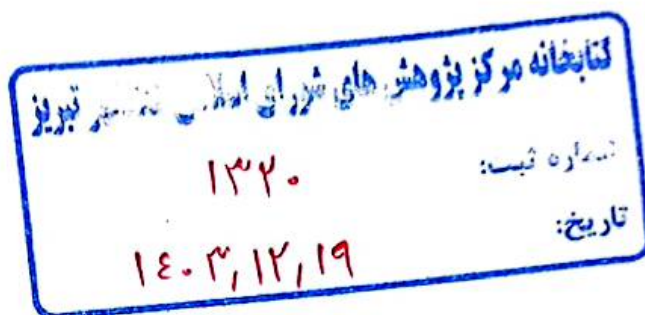 کتابخانه مرکز پژوهش های شورای اسلامی شهر تبریز
شماره ثبت:
۱۳۲۰
تاریخ:
۱۴۰۳,۱۲,۱۹